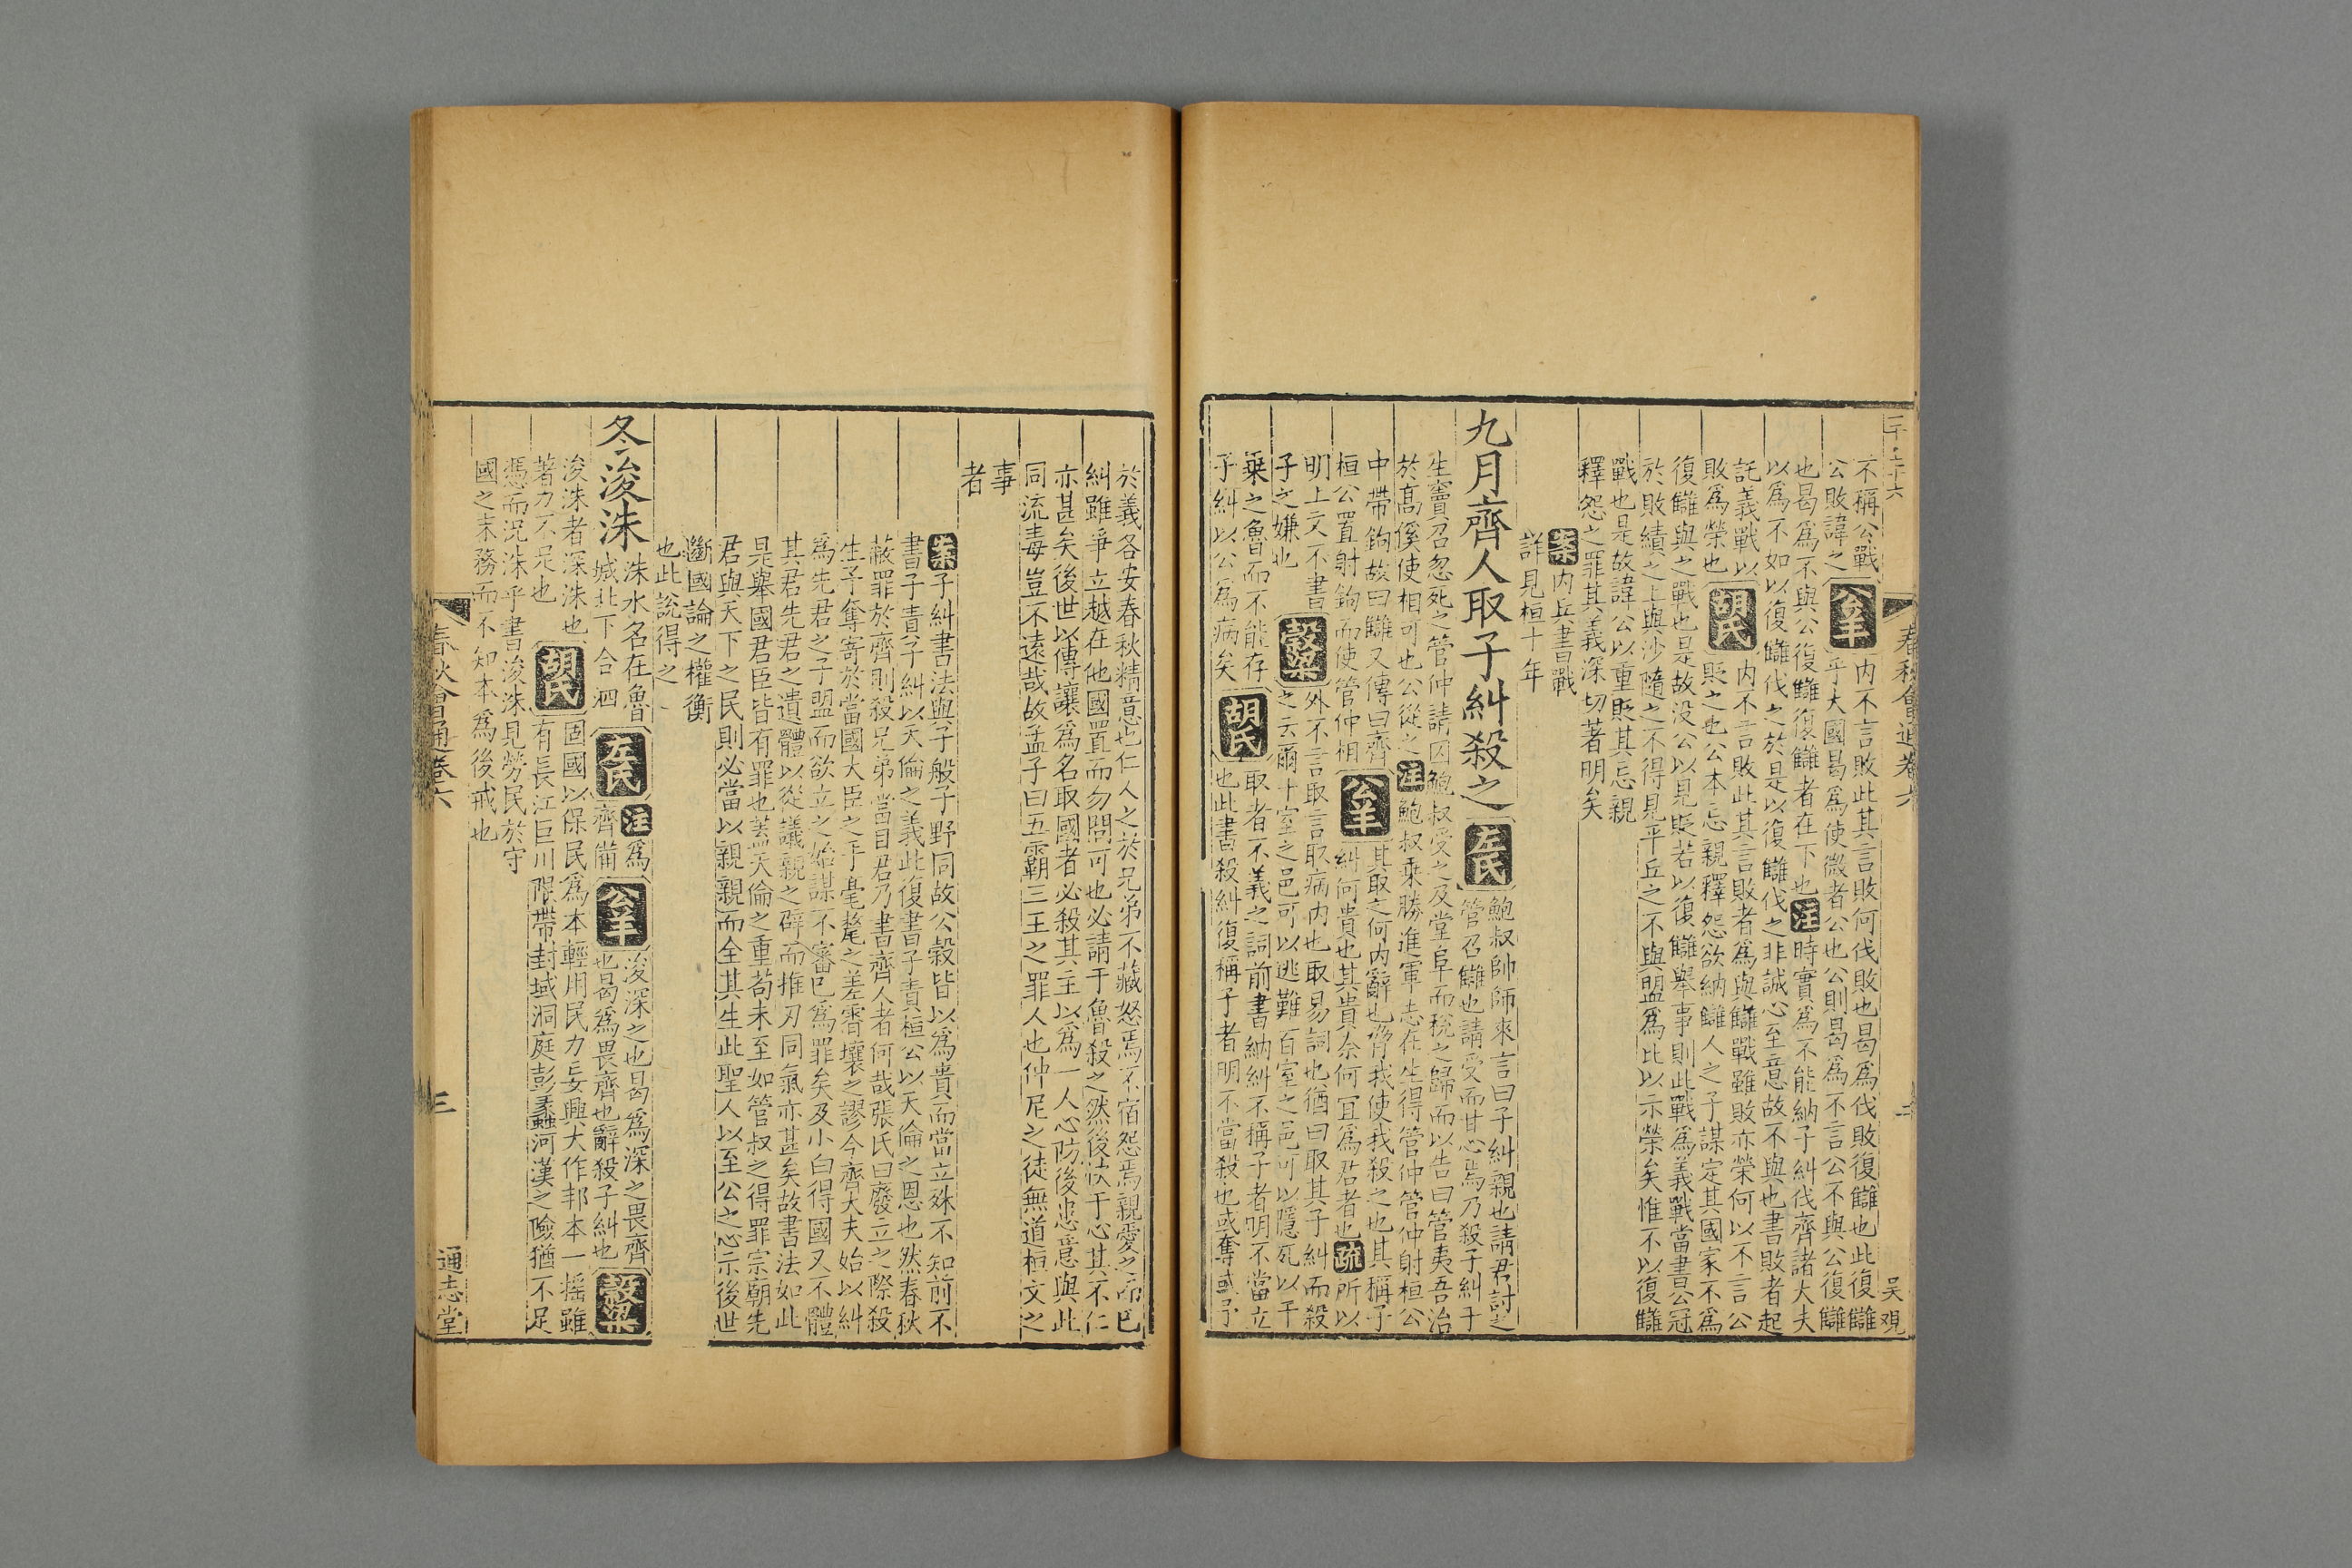 不稱公戰公羊內不言敗此其言敗何伐敗也曷爲伐敗復讎也此復讎
公敗諱之乎大國曷爲使微者公也公則曷爲不言公不與公復讎
也曷爲不與公復讎復讎者在下也注時實爲不能納子糾伐齊諸大夫
以爲不如以復讎伐之於是以復讎伐之非誠心至意故不與也書敗者起
託義戰以胡氏内不言敗此其言敗者爲與讎戰雖敗亦榮何以不言公
敗爲榮也貶之也公本忘親釋怨欲納讎人之子謀定其國家不爲
復讎與之戰也是故没公以見貶若以復讎舉事則此戰爲義戰當書公冠
於敗績之上與沙隨之不得見平丘之不與盟爲比以示榮矣惟不以復讎
戰也是故諱公以重貶其忘親
釋怨之罪其義深切著明矣
案内兵書戰
詳見桓十年
九月齊人取子糾殺之左氏鮑叔帥師來言曰子糾親也請君討之
管召讎也請受而甘心焉乃殺子糾于
生竇召忽死之管仲請囚鮑叔受之及堂阜而稅之歸而以告曰管夷吾治
於高傒使相可也公從之注鮑叔乗勝進軍志在生得管仲管仲射桓公
中帶鉤故曰讎又傳曰齊公羊其取之何内辭也脅我使我殺之也其稱子
桓公置射鉤而使管仲相糾何貴也其貴奈何冝爲君者也疏所以
明上文不書穀梁外不言取言取病内也取易詞也猶曰取其子糾而殺
子之嫌也之云爾十室之邑可以逃難百室之邑可以隱死以千
乗之魯而不能存胡氏取者不義之詞前書納糾不稱子者明不當立
子糾以公爲病矣也此書殺糾復稱子者明不當殺也或奪或予
春秋會通卷六
二
吳覌
於義各安春秋精意也仁人之於兄弟不藏怒焉不宿怨焉親愛之而已
糾雖爭立越在他國置而勿問可也必請于魯殺之然後快于心其不仁
亦甚矣後世以傳讓爲名取國者必殺其主以爲一人心防後患意與此
同流毒豈不遠哉故孟子曰五霸三王之罪人也仲尼之徒無道桓文之
事
者
案子糾書法與子般子野同故公穀皆以爲貴而當立殊不知前不
書子責子糾以天倫之義此復書子責桓公以天倫之恩也然春秋
蔽罪於齊則殺兄弟當目君乃書齊人者何哉張氏曰廢立之際殺
生予奪寄於當國大臣之手毫氂之差霄壤之謬今齊大夫始以糾
爲先君之子盟而欲立之始謀不審已爲罪矣及小白得國又不體
其君先君之遺體以從議親之辟而推刃同氣亦甚矣故書法如此
是舉國君臣皆有罪也蓋天倫之重苟未至如管叔之得罪宗廟先
君與天下之民則必當以親親而全其生此聖人以至公之心示後世
斷國論之權衡
也此說得之
冬浚洙洙水名在魯左氏注爲公羊浚深之也曷爲深之畏齊穀梁
城北下合泗齊備也曷爲畏齊也辭殺子糾也
浚洙者深洙也胡氏固國以保民爲本輕用民力妄興大作邦本一摇雖
著力不足也有長江巨川限帶封域洞庭彭蠡河漢之險猶不足
憑而況洙乎書浚洙見勞民於守
國之末務而不知本爲後戒也
春秋會通卷六
三
通志堂